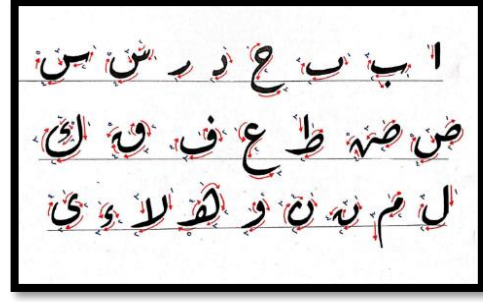 ا ب ب ح د ر س س
ص ص ط ع ف ق ك
ل م ن ن و ه لا ء ى